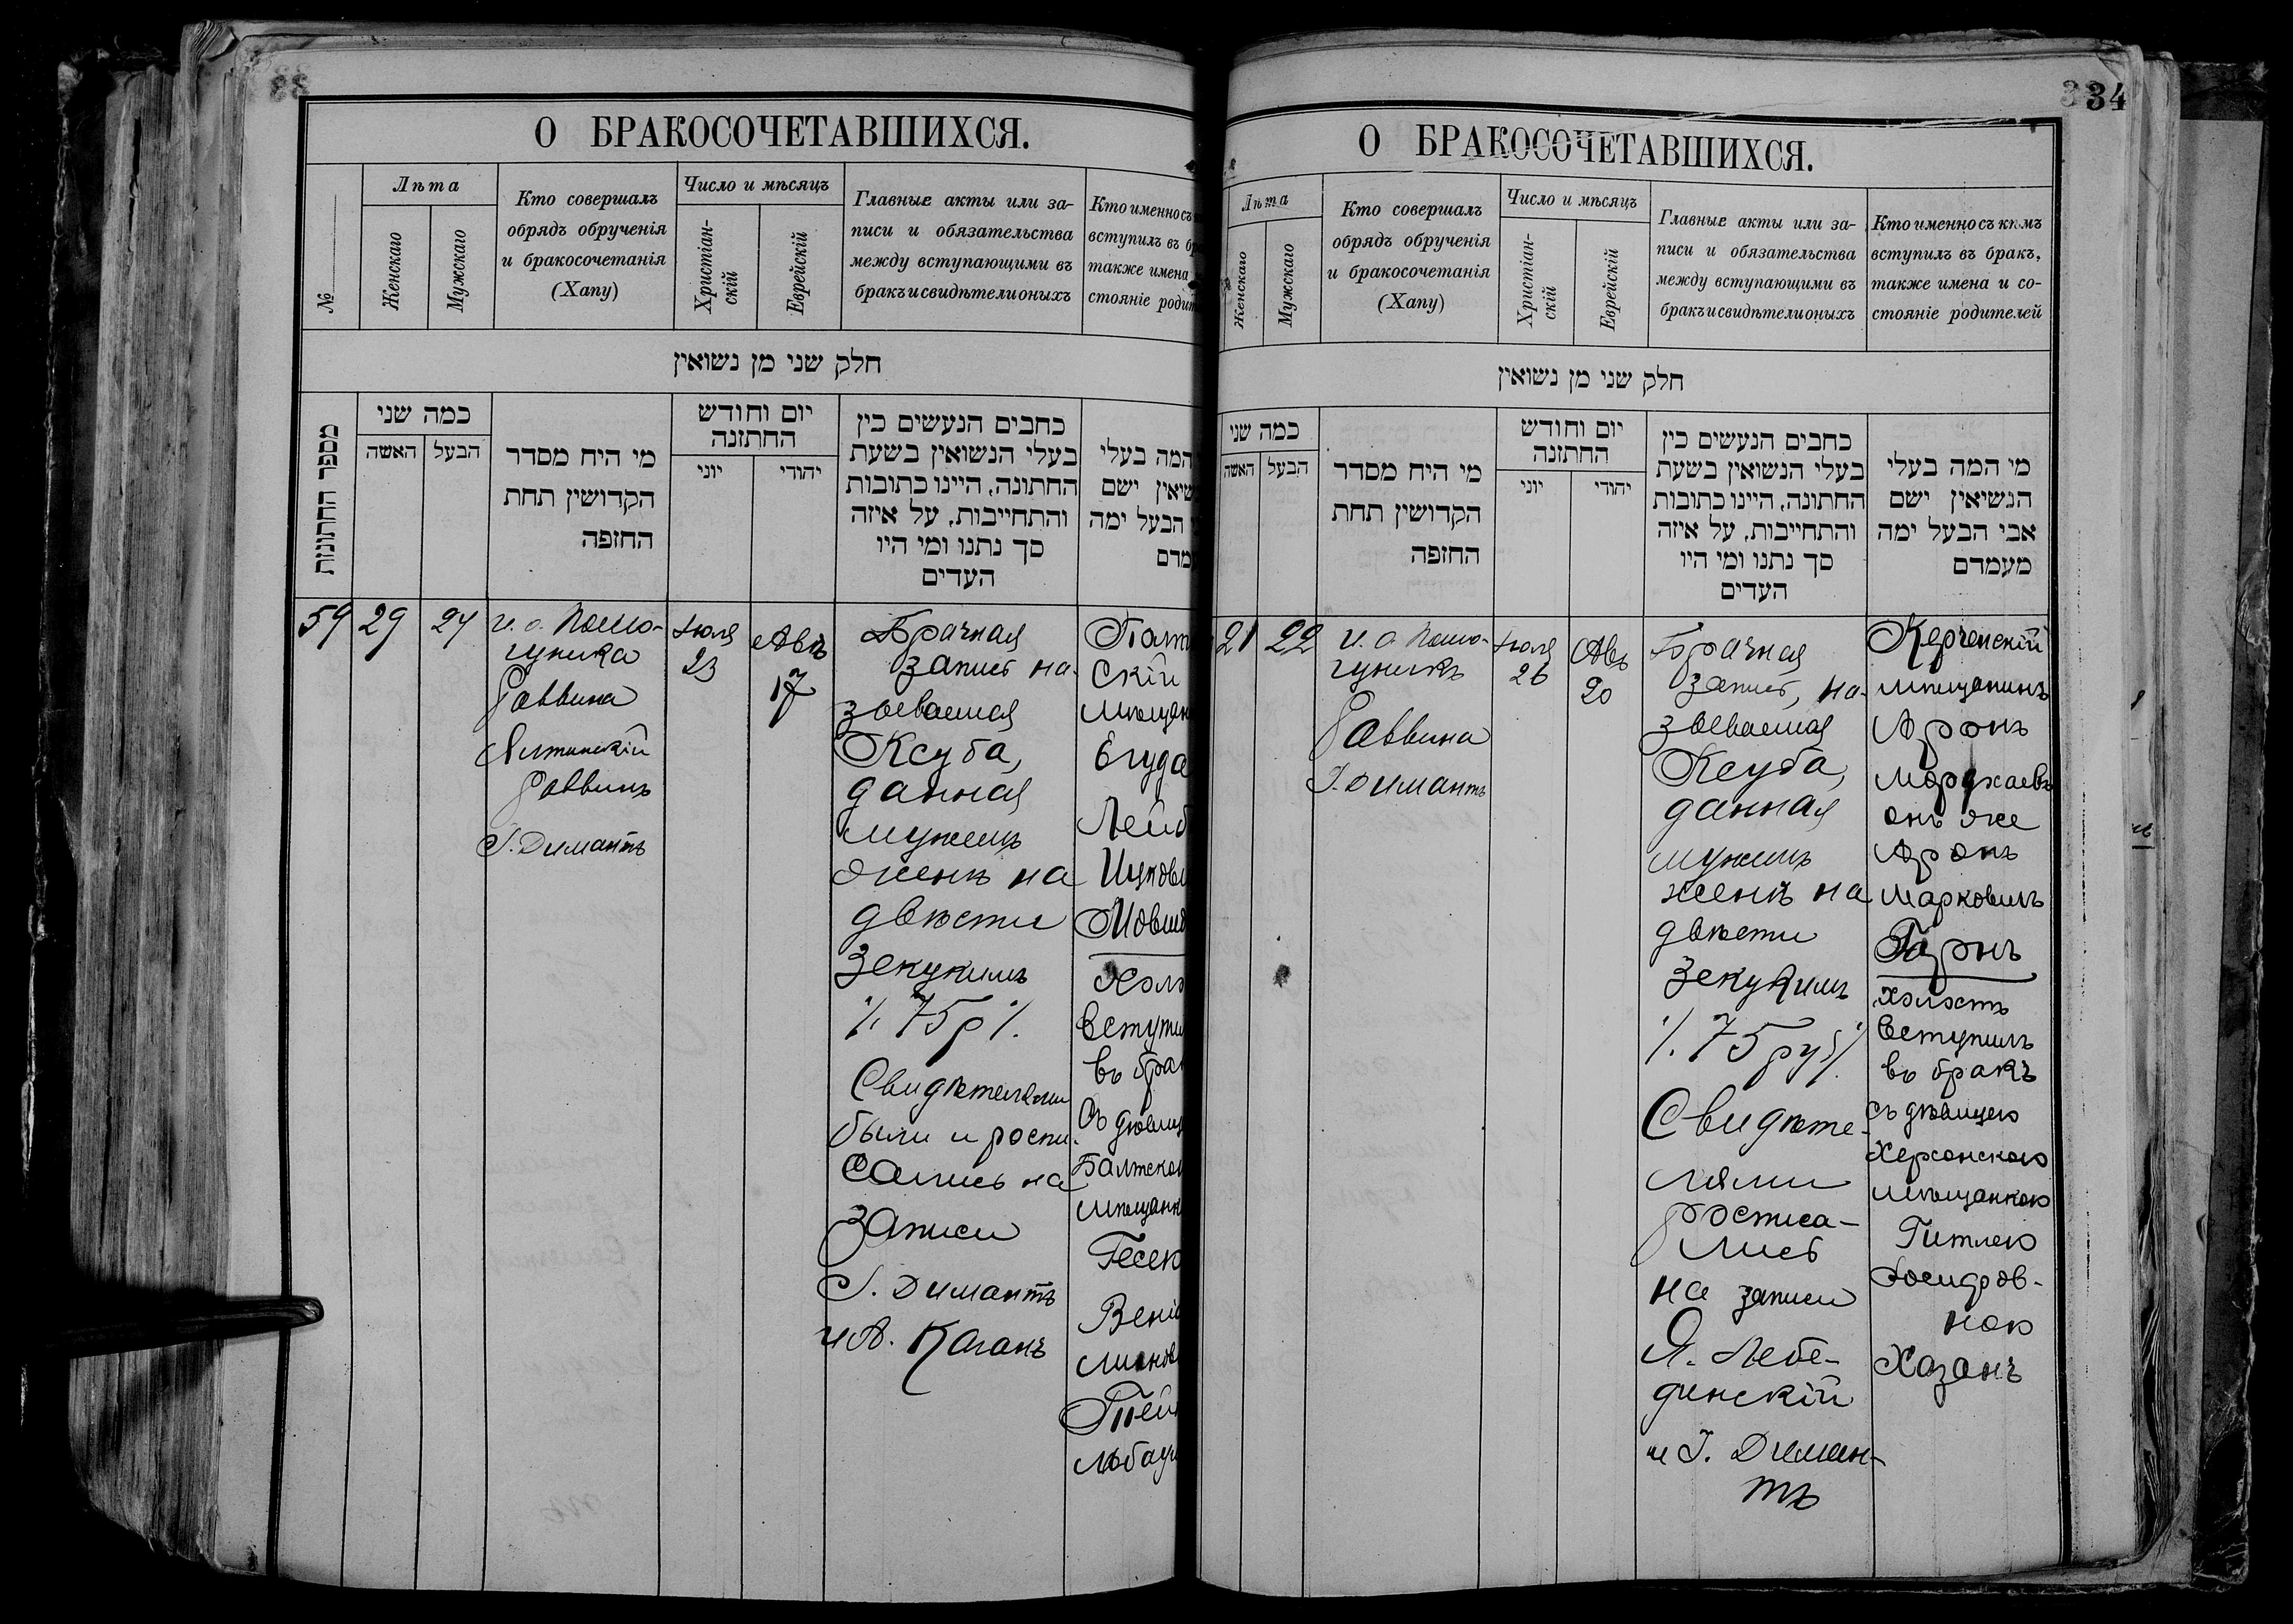 О БРАКОСОЧЕТАВШИХСЯ.
№
Лѣта
Женскаго
Мужскаго
Кто совершалъ
обрядъ обрученія
и бракосочетанія
(Хапу)
Число и мѣсяцъ
Христіан-
скій
Еврейскій
Главные акты или за-
писи и обязательства
между вступающими въ
бракъ и свидѣтели оныхъ
Кто именно съ
вступилъ въ бр
также имена
стояніе родит
חלק שני מן נשואין
מספר החתונות
כמה שני
האשה
הבעל
מי היח מסדר
הקדושין תחת
החזפה
יום וחודש
החתזנה
יוני
יהודי
כחבים הנעשים כין
בעלי הנשואין בשעת
החתונה, היינו כתובות
והתחייבות, על איזה
סך נתנו ומי היו
העדים
המה בעלי
שיאין ישם
הבעל ימה
מדם
59
29
24
и. о. Помо-
щника
Раввина
Ялтинскій
Раввинъ
І. Димантъ
Іюля
23
Авъ
17
Брачная
запись на-
зываемая
Ксуба,
данная
мужемъ
женѣ на
двѣсти
Зекукимъ
/. 75 р /.
Свидѣтелями
были и роспи-
сались на
Записи
І. Димантъ
и А. Каганъ
Полт
скій
мѣщан
Егуда
Лейб
Ицкови
Мовш
Холо
вступи
въ бра
съ дѣвиц
Балтско
мѣщанк
Гесею
Веніа
минов
Тей
льбау
34
О БРАКОСОЧЕТАВШИХСЯ.
Лѣта
Женскаго
Мужскаго
Кто совершалъ
обрядъ обрученія
и бракосочетанія
(Хапу)
Число и мѣсяцъ
Христіан-
скій
Еврейскій
Главные акты или за-
писи и обязательства
между вступающими въ
бракъ и свидѣтели оныхъ
Кто именно съ кѣмъ
вступилъ въ бракъ,
также имена и со-
стояніе родителей
חלק שני מן נשואין
כמה שני
האשה
הבעל
מי היח מסדר
הקדושין תחת
החזפה
יום וחודש
החתזנה
יוני
יהודי
כחבים הנעשים כין
בעלי הנשואין בשעת
החתונה, היינו כתובות
והתחייבות, על איזה
סך נתנו ומי היו
העדים
מי המה בעלי
הנשיאין ישם
אבי הבעל ימה
מעמדם
21
22
и. о. Помо-
щникъ
Раввина
І. Димантъ
Іюля
26
Авъ
20
Брачная
запись, на-
зываемая
Ксуба,
данная
мужемъ
женѣ на
двѣсти
Зекукимъ
/. 75 руб /.
Свидѣте-
лями
Росписа-
лись
на записи
Я. Лебе-
динскій
и І. Диман-
тъ
Керченскій
мѣщанинъ
Аронъ
Мордхаевъ
онъ же
Аронъ
Марковичъ
холостъ
вступилъ
въ бракъ
съ дѣвицею
Херсонскою
мѣщанкою
Гитлею
Хазанъ